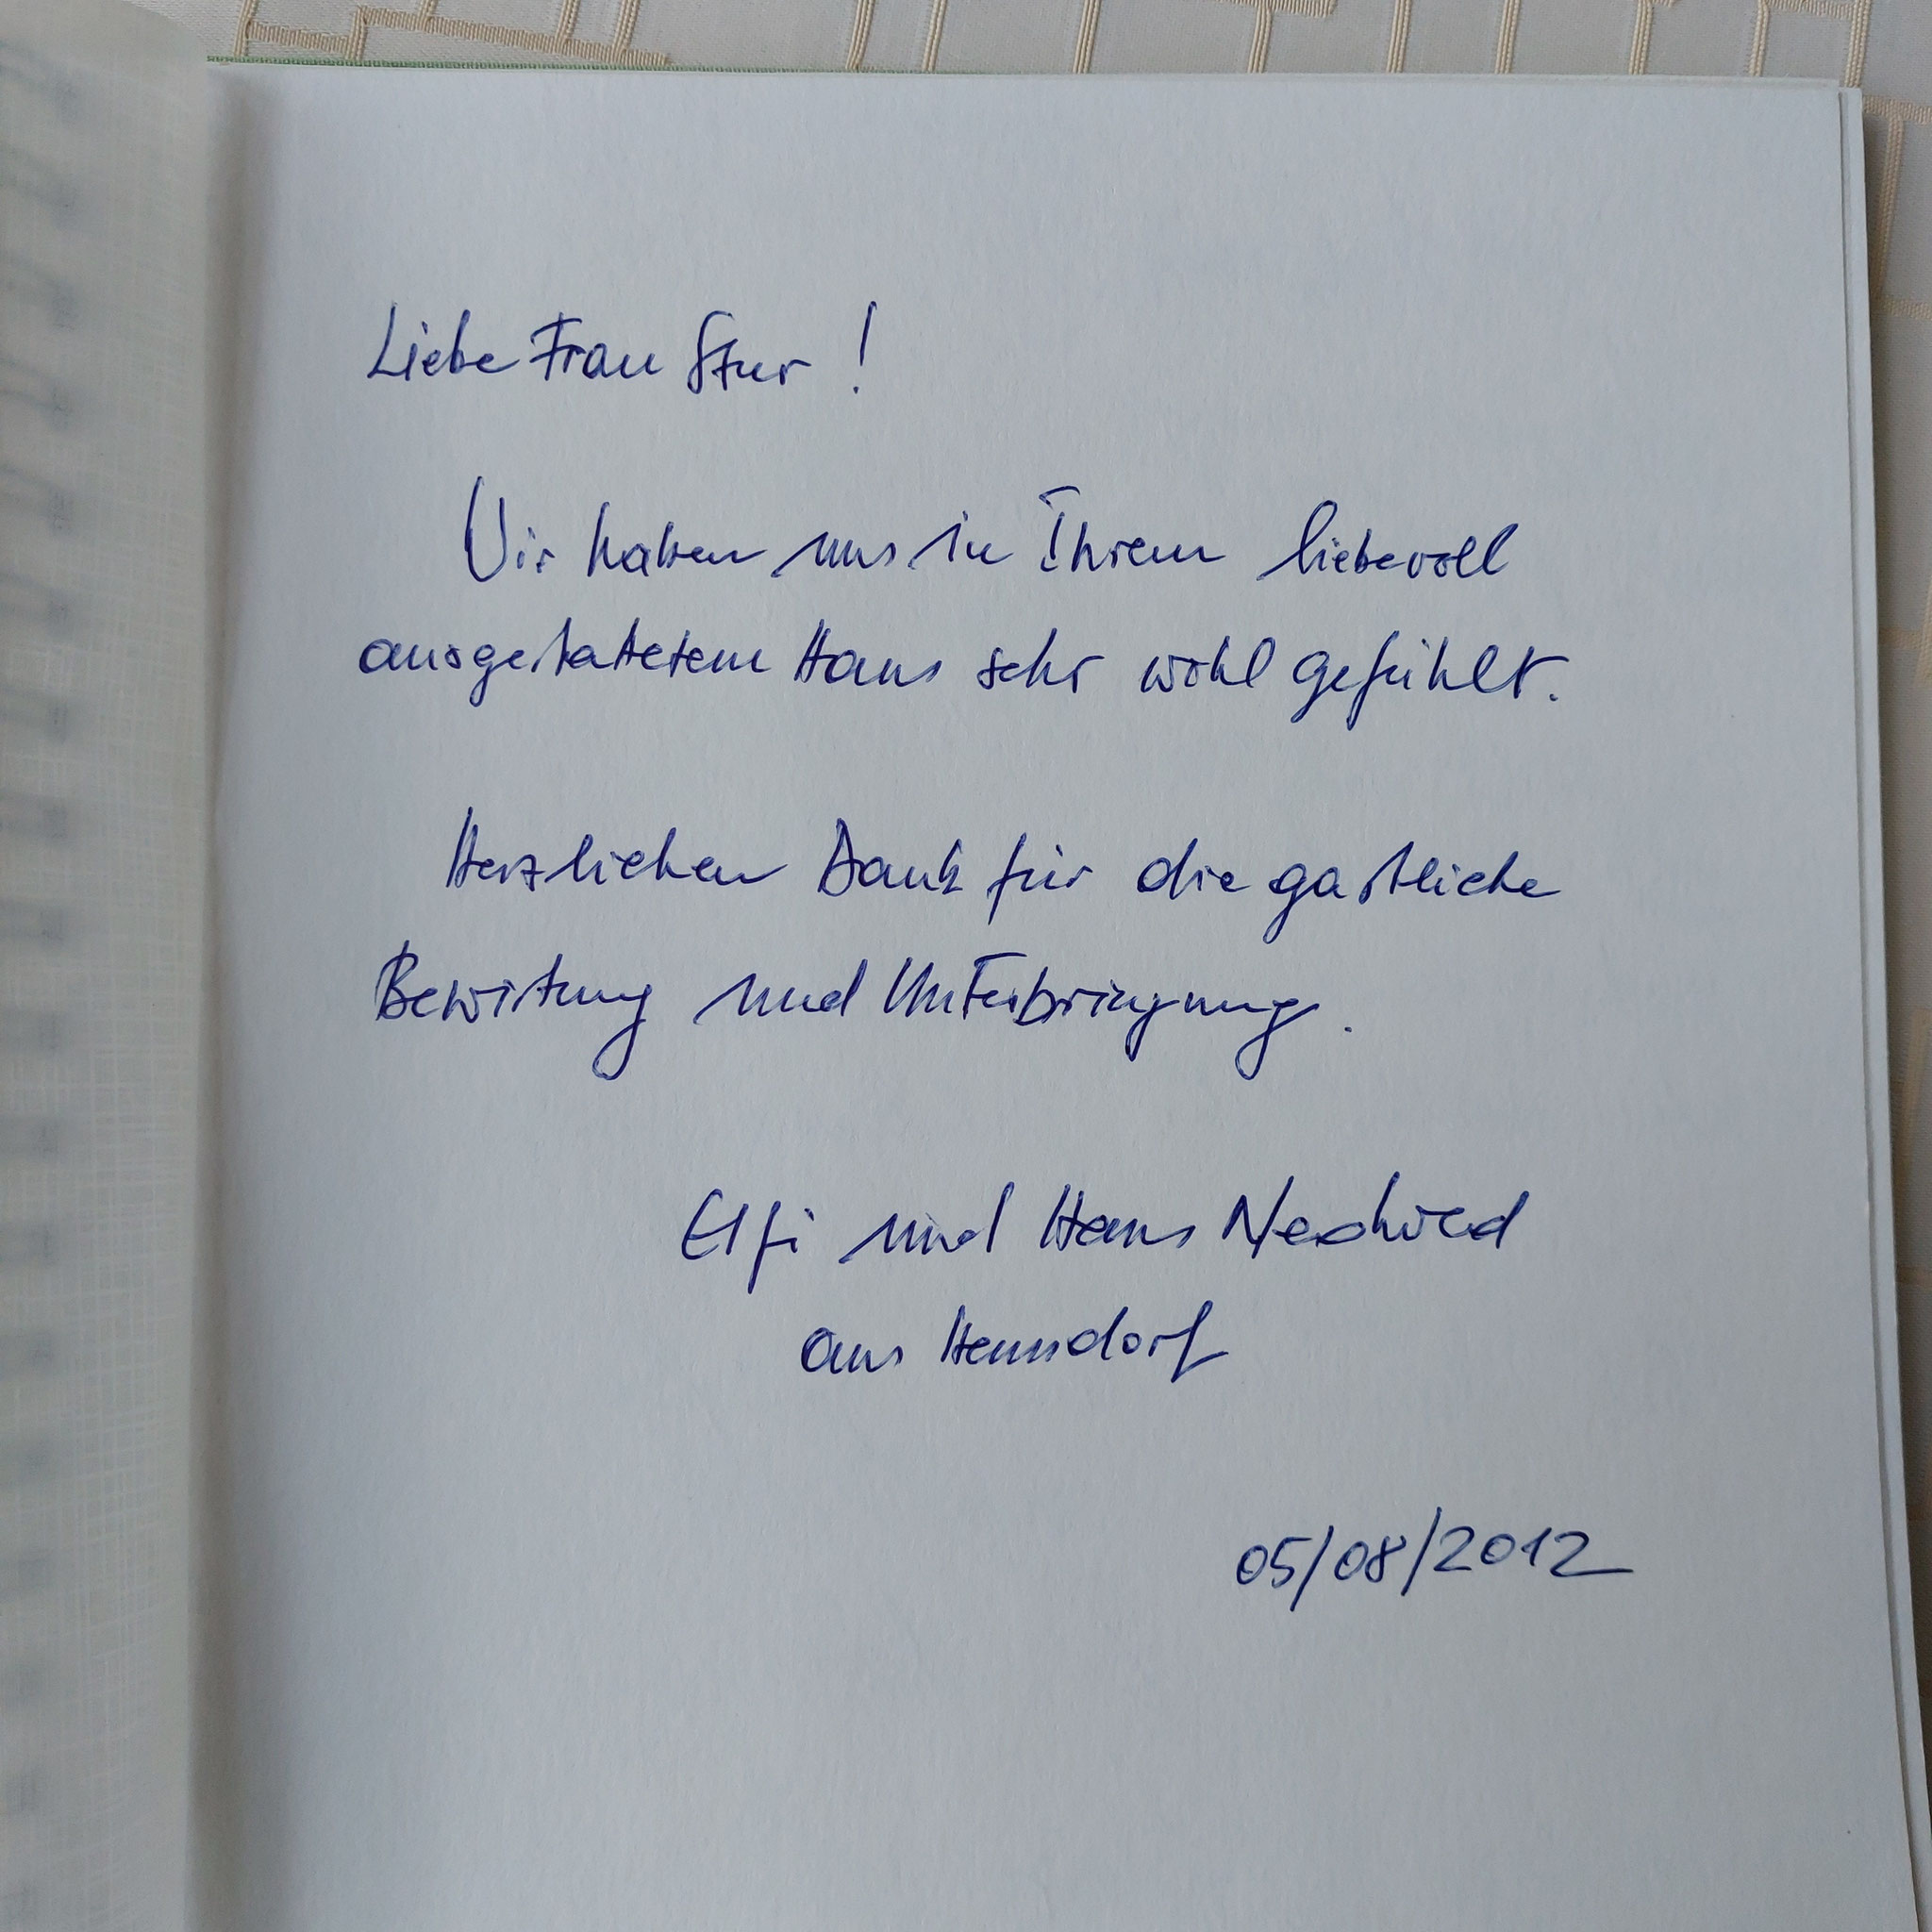 Liebe Frau Stur !
Wir haben uns in Ihrem liebevoll
ausgestattetem Haus sehr wohl gefühlt.
Herzlichen Dank für die gastliche
Bewirtung und Unterbringung.
Elfi und Hans
aus Henndorf
05/08/2012